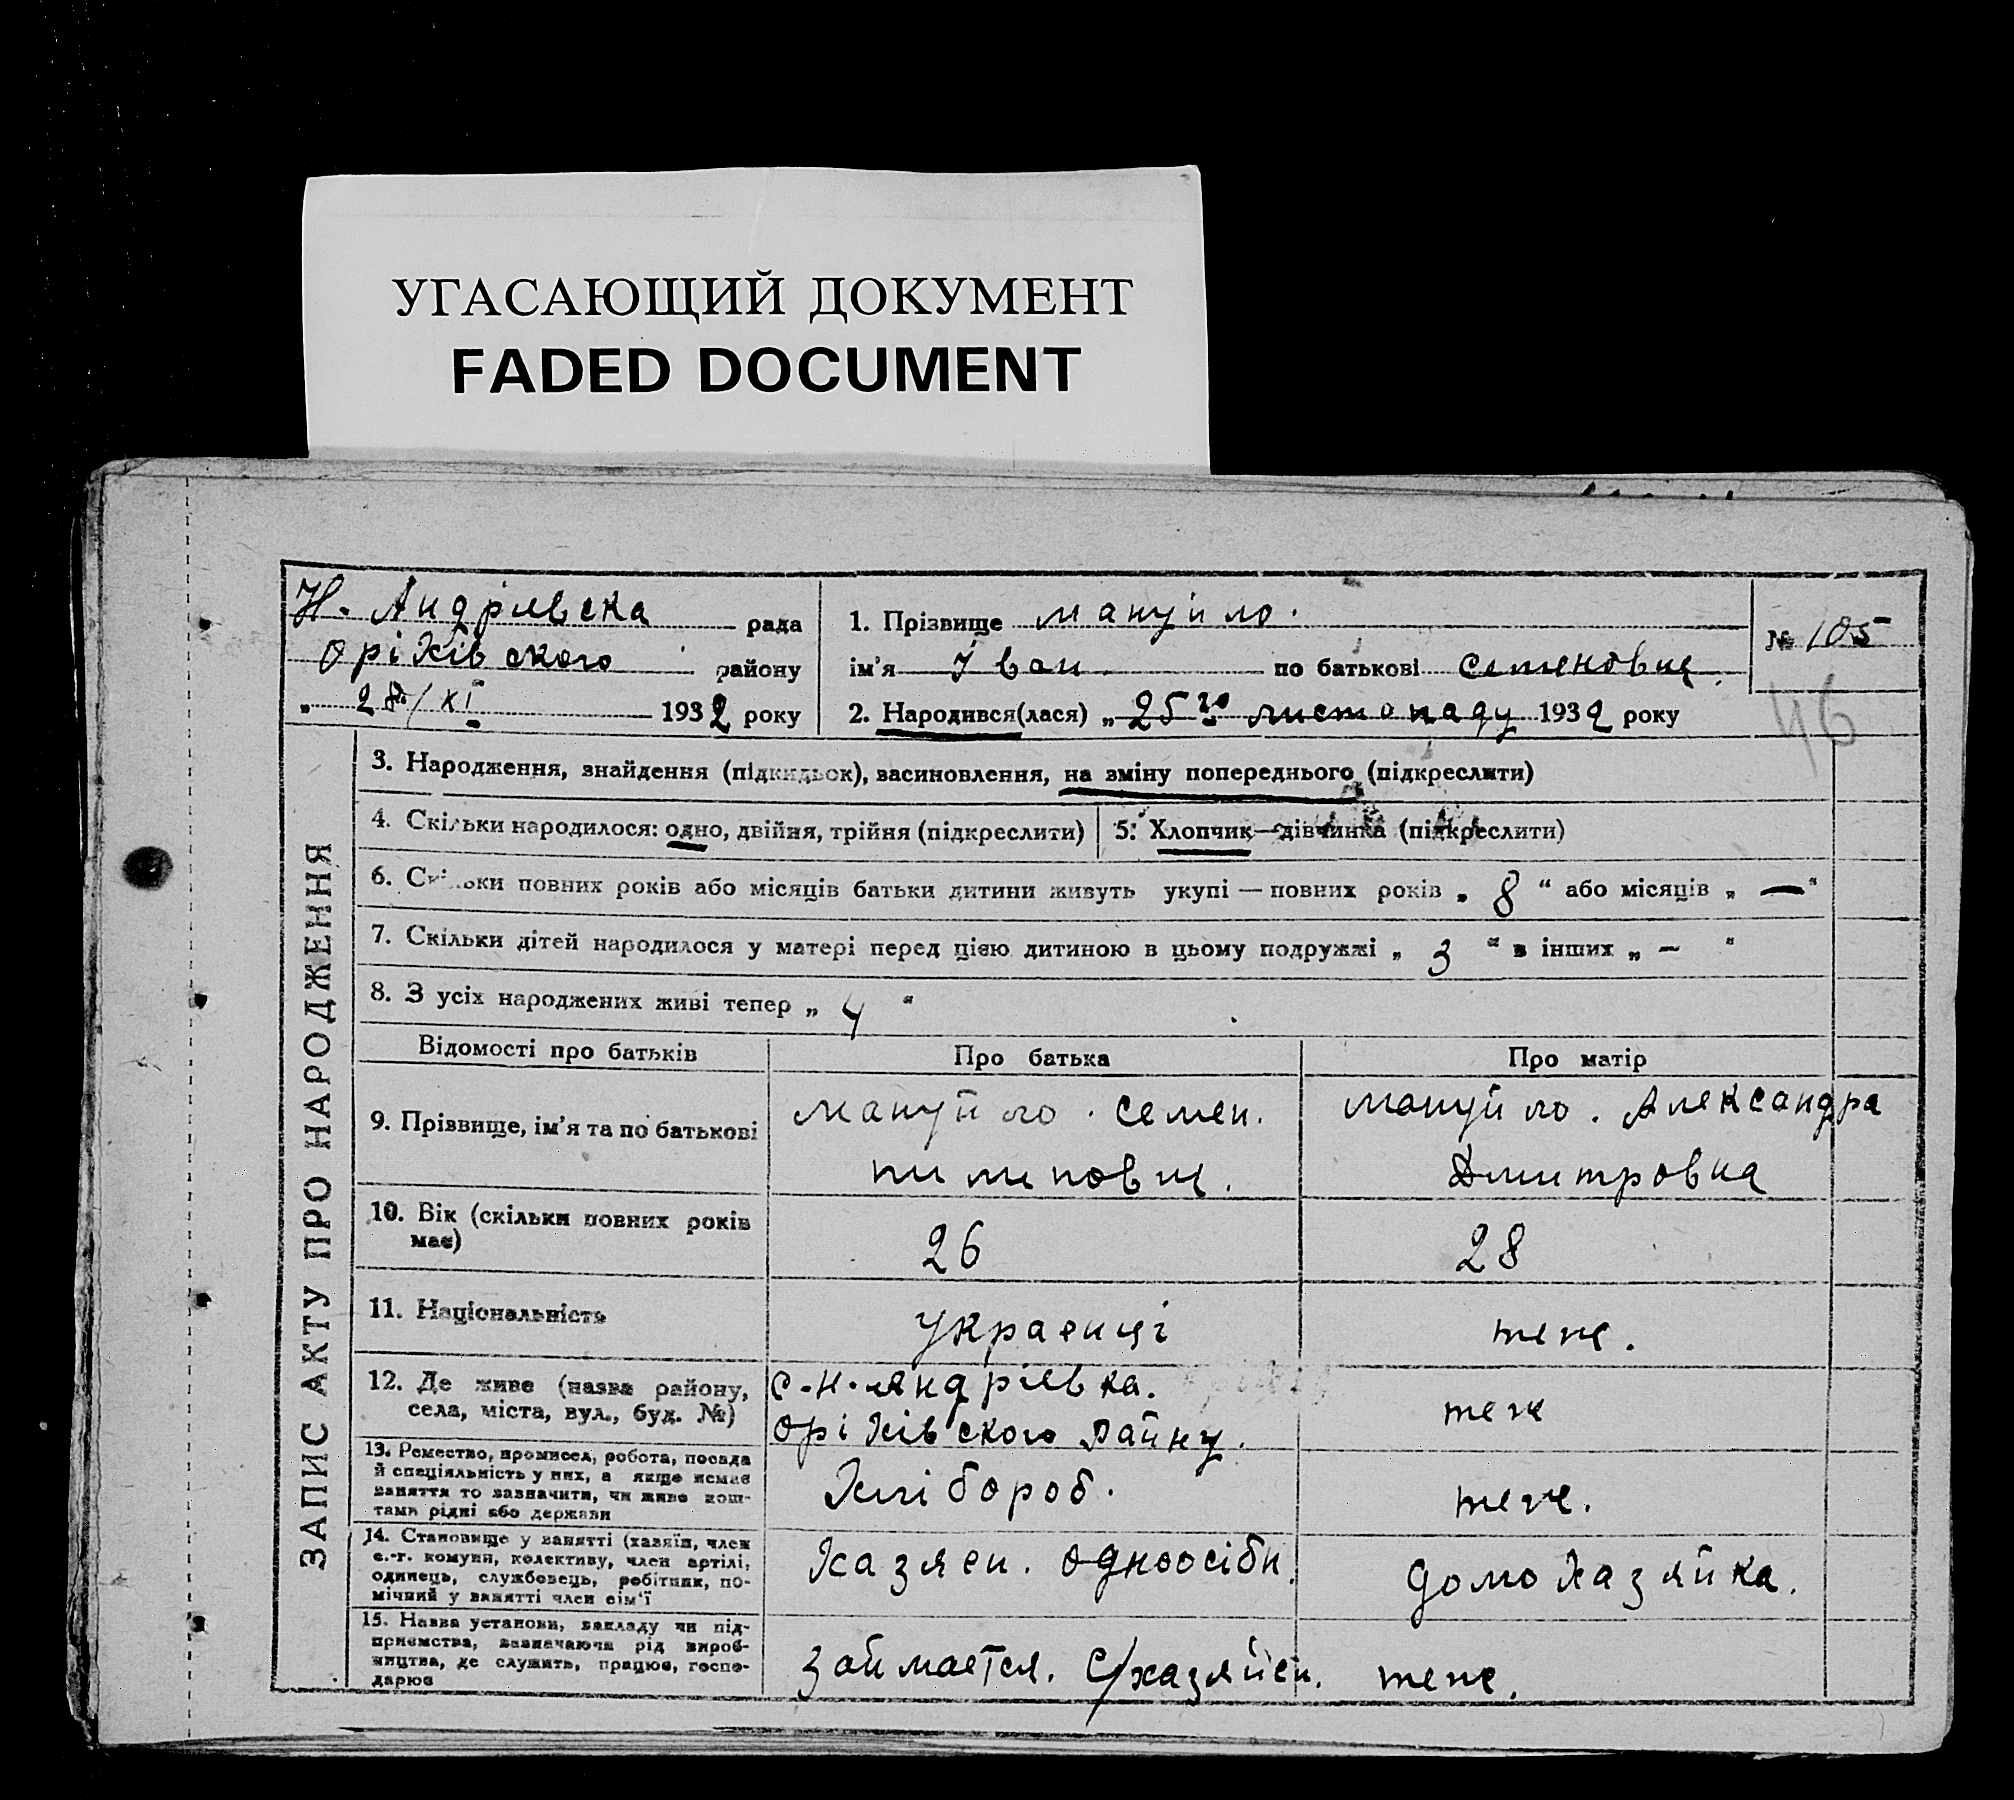 УГАСАЮЩИЙ ДОКУМЕНТ
FADED DOCUMENT
Н. Андрієвска рада
Оріхівского району
„ 28го/XI 1932 року
1. Прізвище Мануйло.
ім'я Іван. по батькові Семенович.
2. Народився(лася) „ 25го листопаду 1932 року
№ 105
46
ЗАПИС АКТУ ПРО НАРОДЖЕННЯ
3. Народження, знайдення (підкидьок), васиновлення, на зміну попереднього (підкреслити)
4. Скільки народилося: одно, двійня, трійня (підкреслити)
5. Хлопчик—дівчинка (підкреслити)
6. Скільки повних років або місяців батьки дитини живуть укупі — повних років „ 8 “ або місяців „ — “
7. Скільки дітей народилося у матері перед цією дитиною в цьому подружжі „ 3 “ в інших „ – “
8. З усіх народжених живі тепер „ 4 “
Відомості про батьків
Про батька
Про матір
9. Прізвище, ім'я та по батькові
Мануйло. Семен.
Пилипович.
Мануйло. Александра
Дмитровна
10. Вік (скільки повних років
має)
26
28
11. Національність
Украенці
теж.
12. Де живе (назва району,
села, міста, вул., буд. №)
с. Н. Андрієвка.
Оріхівского Району.
теж
13. Ремество, промисел, робота, посада
й спеціяльність у них, а якщо немає
заняття то зазначити, чи живе кош-
тами рідні або держави
Хлібороб.
теж.
14. Становище у занятті (хазяїн, член
с.-г. комуни, колективу, член артілі,
одинець, службовець, робітник, по-
мічний у занятті член сім'ї
Хазяен. одноосібн.
домохазяйка.
15. Назва установи, закладу чи під-
приємства, зазначаючи рід вироб-
ництва, де служить, працює, госпо-
дарює
Займается. с/хазяйсн.
теж.